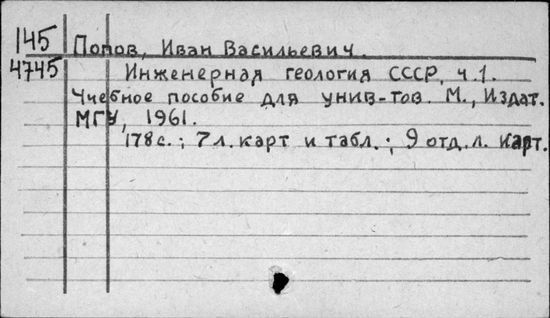 145 Попов, Иван Васильевич.
4745 Инженерная геология СССР, ч.1.
Учебное пособие для унив-тов. М., Издат.
МГУ, 1961.
178с.; 7л. карт и табл.; 9 отд. л. карт.